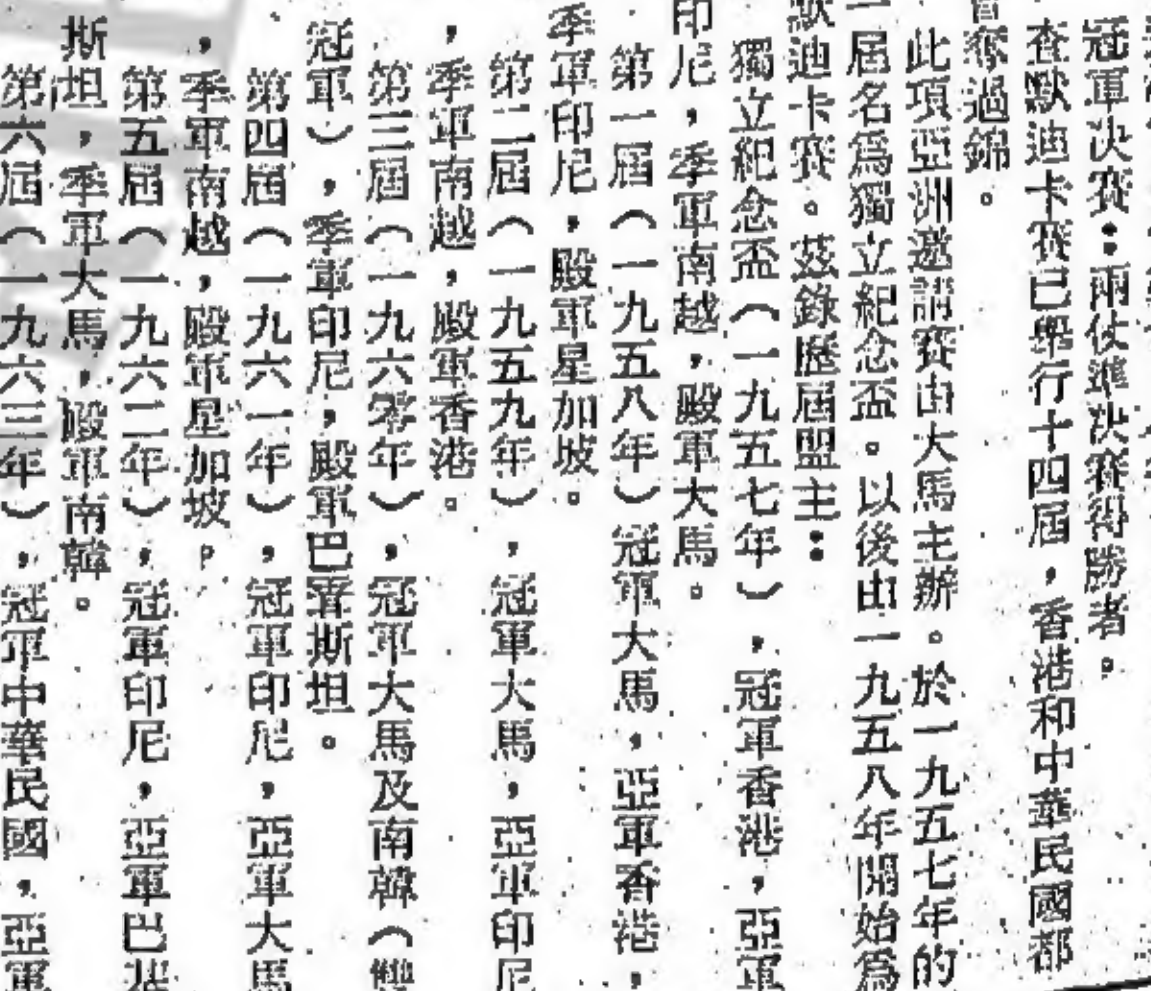 冠軍決賽：兩仗準決賽得勝者。
查默迪卡賽已舉行十四屆，香港和中華民國都
曾奪過錦。
此項亞洲邀請賽由大馬主辦。於一九五七年的
一屆名為獨立紀念盃。以後由一九五八年開始為
默迪卡賽。茲錄歷屆盟主：
獨立紀念盃（一九五七年），冠軍香港，亞軍
印尼，季軍南越，殿軍大馬。
第一屆（一九五八年）冠軍大馬，亞軍香港，
季軍印尼，殿軍星加坡。
第二屆（一九五九年），冠軍大馬，亞軍印尼
，季軍南越，殿軍香港。
第三屆（一九六零年），冠軍大馬及南韓（雙
冠軍），季軍印尼，殿軍巴基斯坦。
第四屆（一九六一年），冠軍印尼，亞軍大馬
，季軍南越，殿軍星加坡。
第五屆（一九六二年），冠軍印尼，亞軍巴基
斯坦，季軍大馬，殿軍南韓。
第六屆（一九六三年），冠軍中華民國，亞軍